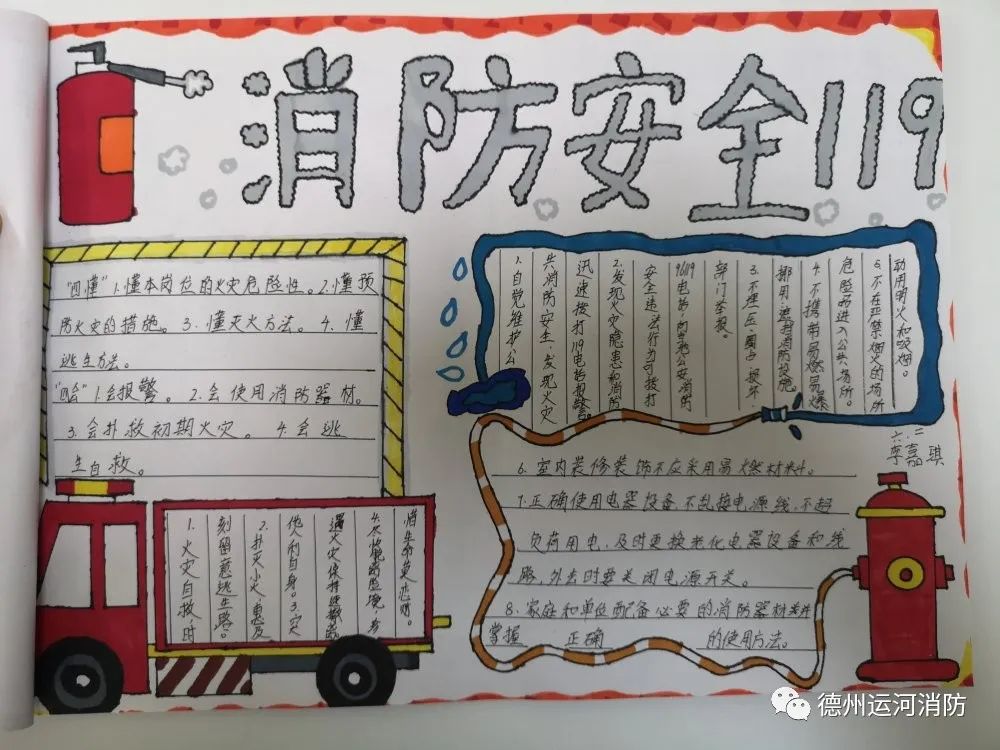 消防安全119
"四懂" 1.懂本岗位的火灾危险性。2.懂预
防火灾的措施。3.懂灭火方法。4.懂
逃生方法。
"四会" 1.会报警。2.会使用消防器材。
3.会扑救初期火灾。4.会逃
生自救。
1.自觉维护公
共消防安全,发现火灾
迅速拨打119电话报警。
2.发现火灾隐患和消防
安全违法行为可拨打
96119电话,向当地公安消防
部门举报。
3.不埋压、圈占、损坏
挪用、遮挡消防设施
4.不携带易燃易爆
危险品进入公共场所。
5.不在严禁烟火的场所
动用明火和吸烟。
六.二
李嘉琪
6.室内装修装饰不应采用易燃材料。
7.正确使用电器设备,不乱接电源线,不超
负荷用电,及时更换老化电器设备和线
路,外出时要关闭电源开关。
8.家庭和单位配备必要的消防器材并
掌握 正确 的使用方法。
1.火灾自救,时
刻留意逃生路。
2.扑灭小火,惠及
他人利自身。3.突
遇火灾保持镇静
4.尽快脱离险境,珍
惜生命莫恋财。
德州运河消防